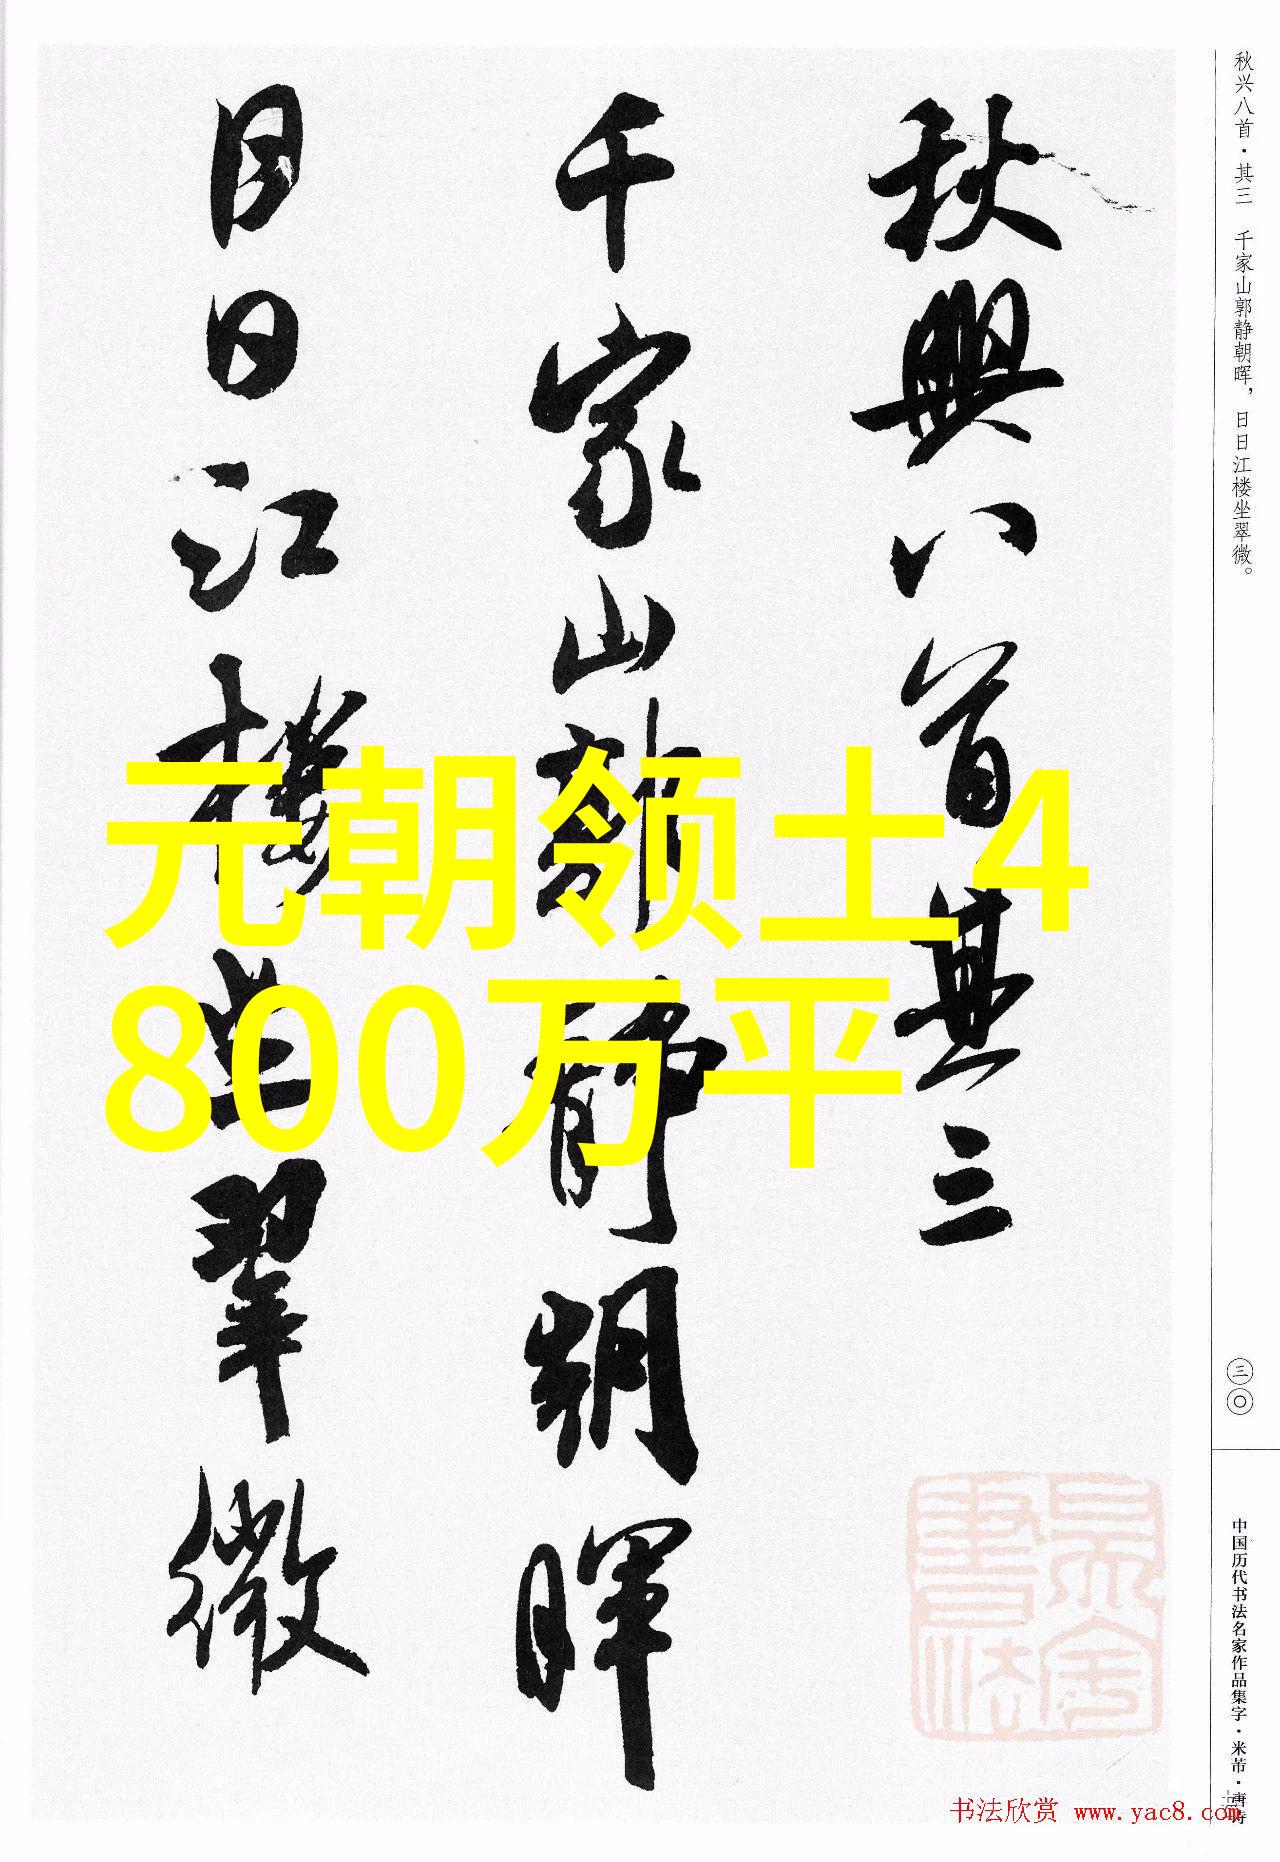 秋兴八首·其三 千家山郭静朝晖，日日江楼坐翠微。
三〇
中国历代书法名家作品集字·米芾·唐诗
秋興八首其三
千家山郭静朝暉
日日江樓坐翠微
元朝领土4
800万平
书法欣赏 www.yac8.com